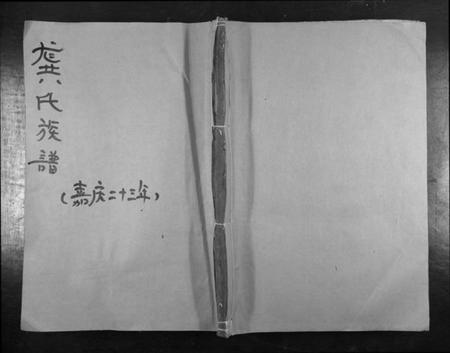 龚氏族譜
(嘉庆二十三年)